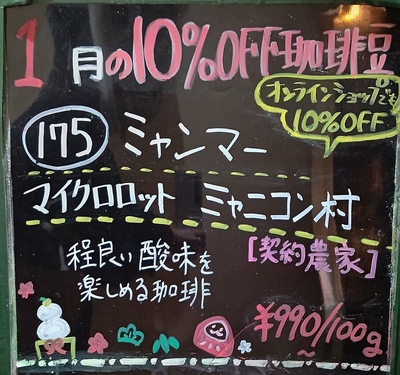 1月の10%OFF珈琲豆
オンラインショップでも
10%OFF
175 ミャンマー
マイクロロット ミャニコン村
[契約農家]
程良い酸味を
楽しめる珈琲
¥990/100g
~